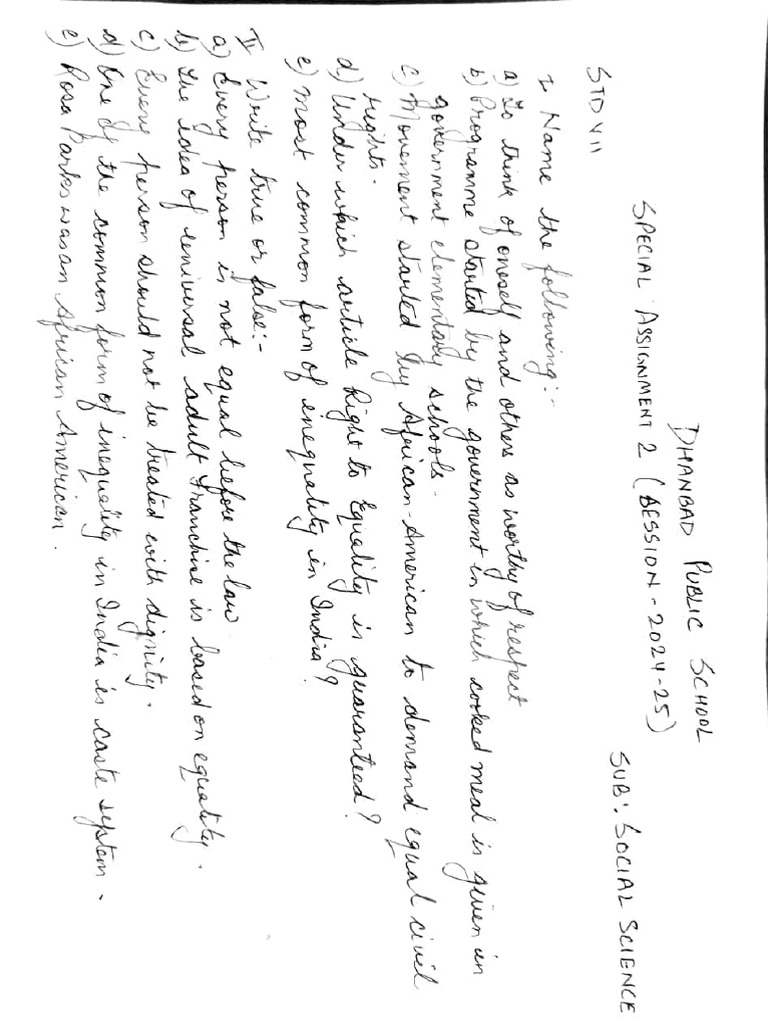 DHANBAD PUBLIC SCHOOL
SPECIAL ASSIGNMENT 2 (SESSION - 2024-25)
STD VII SUB: SOCIAL SCIENCE
I Name the following:-
a) To think of oneself and others as worthy of respect
b) Programme started by the government in which cooked meal is given in
government elementary schools.
c) Movement started by African-American to demand equal civil
rights.
d) Under which article Right to Equality is guaranteed?
e) most common form of inequality in India?
II Write true or false:-
a) Every person is not equal before the law.
b) The idea of universal adult franchise is based on equality.
c) Every person should not be treated with dignity.
d) One of the common form of inequality in India is caste system.
e) Rosa Parks was an African American.